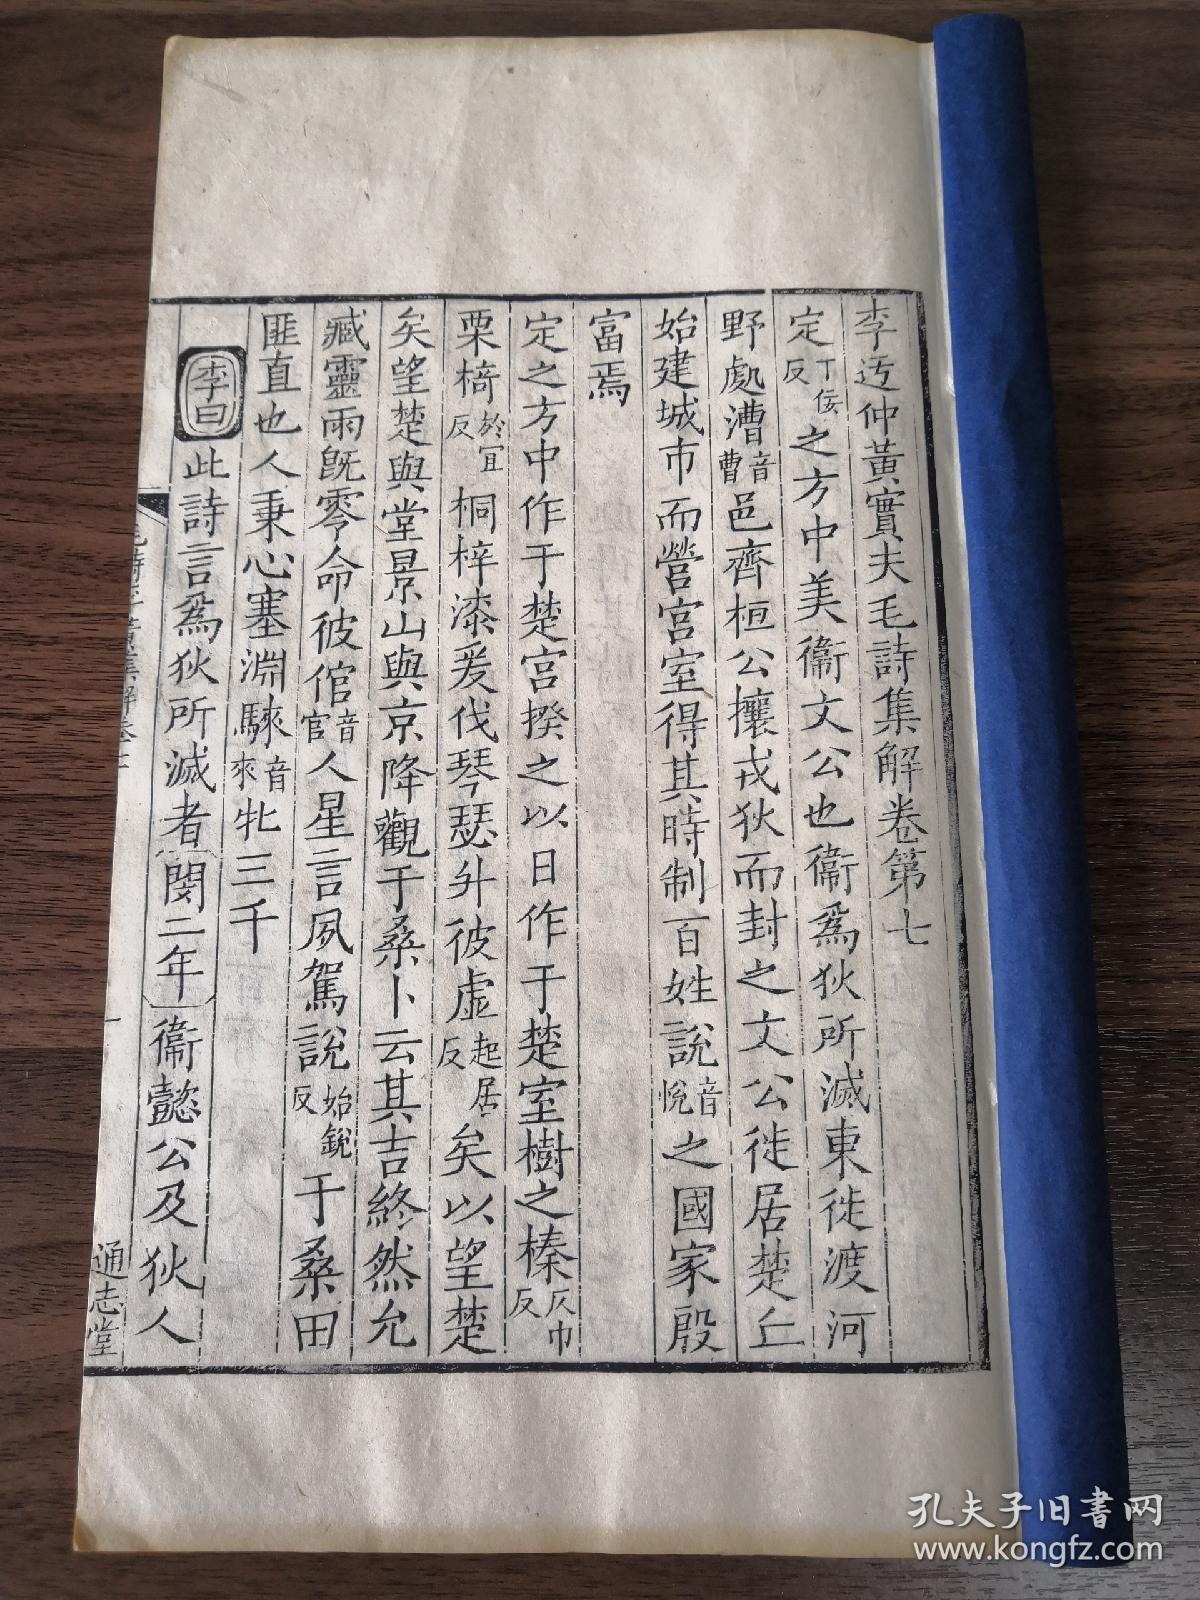 李迃仲黃實夫毛詩集解卷第七
定丁佞反之方中美衞文公也衞爲狄所滅東徙渡河
野處漕音曹邑齊桓公攘戎狄而封之文公徙居楚丘
始建城市而營宮室得其時制百姓說音悅之國家殷
富焉
定之方中作于楚宮揆之以日作于楚室樹之榛仄巾反
栗椅於宜反桐梓漆爰伐琴瑟升彼虛起居反矣以望楚
矣望楚與堂景山與京降觀于桑卜云其吉終然允
臧靈雨旣零命彼倌音官人星言夙駕說始銳反于桑田
匪直也人秉心塞淵騋音來牝三千
李曰此詩言爲狄所滅者閔二年衞懿公及狄人
通志堂
孔夫子旧书网
www.kongfz.com